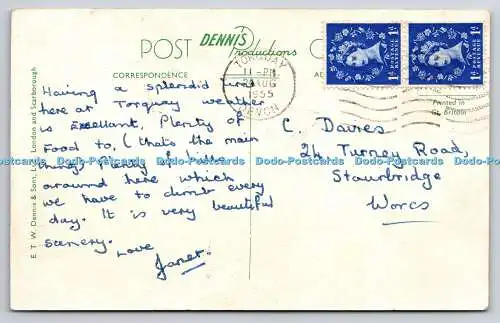 POST
DENNIS
Productions
CORRESPONDENCE
TORQUAY
11 - PM
AUG
1955
DEVON
POSTAGE
REVENUE
1D
POSTAGE
REVENUE
1D
Printed in
Gt. Britain
E. T. W. Dennis & Sons, Ltd., London and Scarborough
Having a splendid time
here at Torquay weather
is Excellent, Plenty of
Food to, (that's the main
thing) Plenty of hills
around here which
we have to climb every
day. It is very beautiful
scenery.
Love
Janet.
C. Davies
24 Turney Road,
Stourbridge
Worcs
Dodo-Postcards Dodo-Postcards Dodo-Postcards Dodo-Postcards Dodo-Postcards